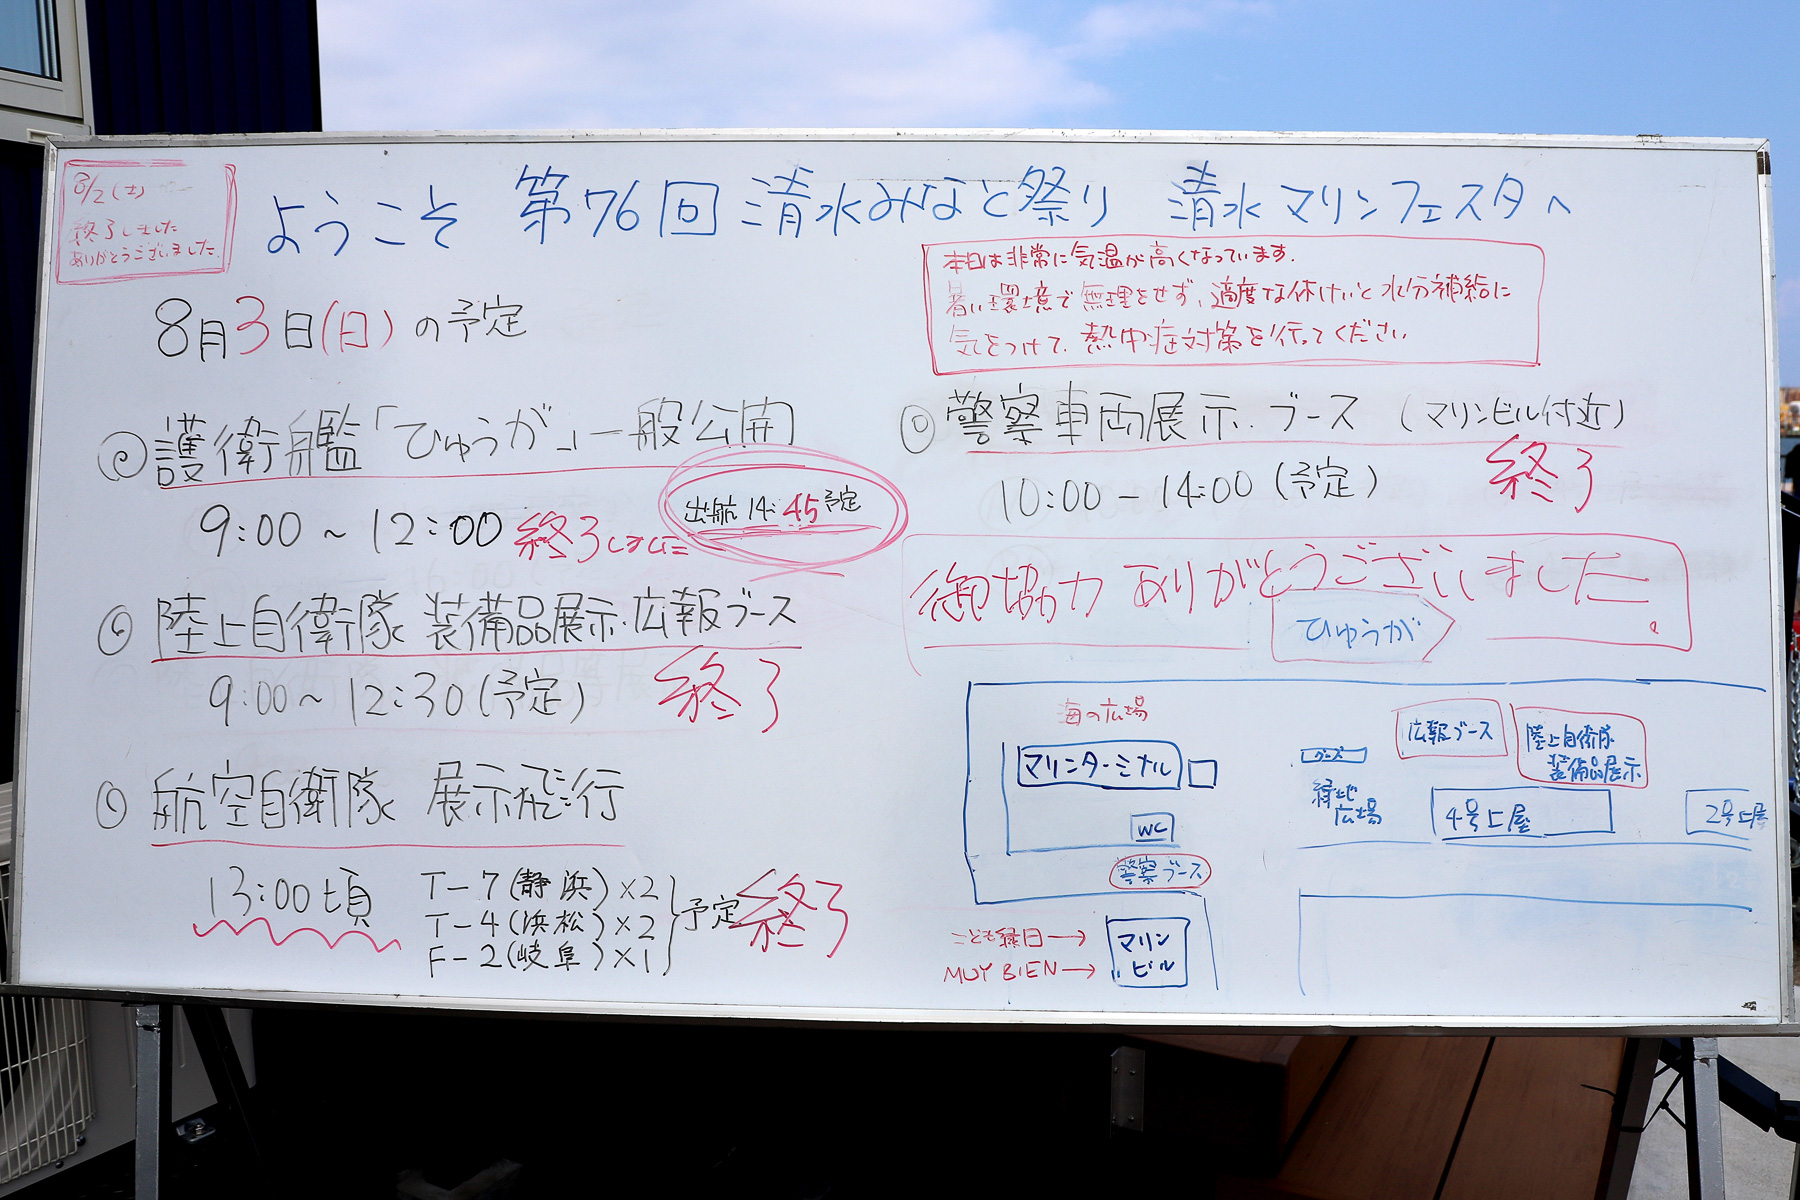 8/2(土)
終了しました
ありがとうございました
ようこそ 第76回 清水みなと祭り 清水マリンフェスタへ
8月3日(日)の予定
本日は非常に気温が高くなっています.
暑い環境で無理をせず、適度な休けいと水分補給に
気をつけて、熱中症対策を行ってください
護衛艦「ひゅうが」一般公開
9:00～12:00 終了しました
出航 14:45予定
陸上自衛隊 装備品展示・広報ブース
9:00～12:30(予定) 終了
航空自衛隊 展示飛行
13:00頃
T-7(静浜)×2
T-4(浜松)×2
F-2(岐阜)×1
予定 終了
警察車両展示・ブース (マリンビル付近)
10:00-14:00(予定) 終了
御協力 ありがとうございました。
ひゅうが
海の広場
マリンターミナル
WC
警察ブース
こども縁日→
MUY BIEN→
マリン
ビル
グッズ
緑地
広場
広報ブース
陸上自衛隊
装備品展示
4号上屋
2号上屋